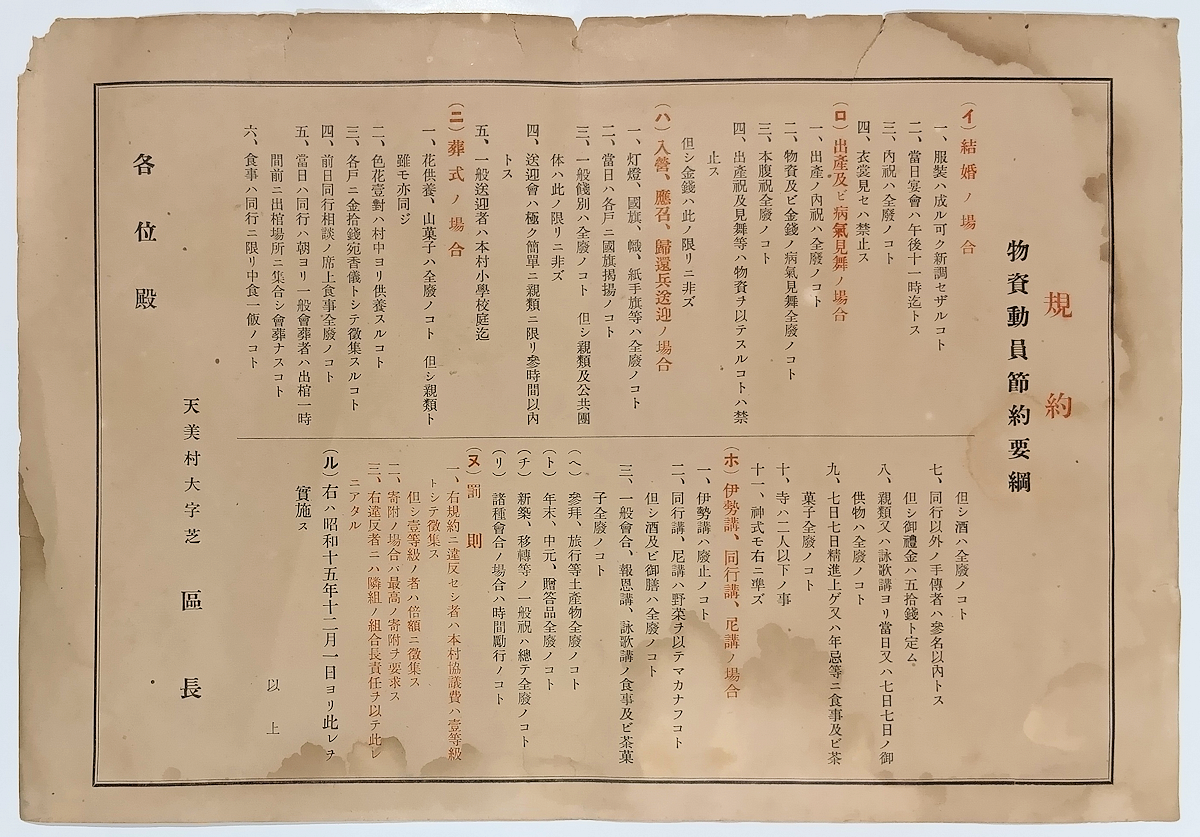 規約
物資動員節約要綱
(イ)結婚ノ場合
一、服裝ハ成ル可ク新調セザルコト
二、當日宴會ハ午後十一時迄トス
三、內祝ハ全廢ノコト
四、衣裳見セハ禁止ス
(ロ)出產及ビ病氣見舞ノ場合
一、出產ノ內祝ハ全廢ノコト
二、物資及ビ金錢ノ病氣見舞全廢ノコト
三、本腹祝全廢ノコト
四、出產祝及見舞等ハ物資ヲ以テスルコトハ禁
止ス
但シ金錢ハ此ノ限リニ非ズ
(ハ)入營、應召、歸還兵送迎ノ場合
一、灯燈、國旗、幟、紙手旗等ハ全廢ノコト
二、當日ハ各戶ニ國旗揭揚ノコト
三、一般餞別ハ全廢ノコト 但シ親類及公共團
体ハ此ノ限リニ非ズ
四、送迎會ハ極ク簡單ニ親類ニ限リ參時間以內
トス
五、一般送迎者ハ本村小學校庭迄
(ニ)葬式ノ場合
一、花供養、山菓子ハ全廢ノコト 但シ親類ト
雖モ亦同ジ
二、色花壹對ハ村中ヨリ供養スルコト
三、各戶ニ金拾錢宛香儀トシテ徵集スルコト
四、前日同行相談ノ席上食事全廢ノコト
五、當日ハ同行ハ朝ヨリ一般會葬者ハ出棺一時
間前ニ出棺場所ニ集合シ會葬ナスコト
六、食事ハ同行ニ限リ中食一飯ノコト
但シ酒ハ全廢ノコト
七、同行以外ノ手傳者ハ參名以內トス
但シ御禮金ハ五拾錢ト定ム
八、親類又ハ詠歌講ヨリ當日又ハ七日七日ノ御
供物ハ全廢ノコト
九、七日七日精進上ゲ又ハ年忌等ニ食事及ビ茶
菓子全廢ノコト
十、寺ハ二人以下ノ事
十一、神式モ右ニ準ズ
(ホ)伊勢講、同行講、尼講ノ場合
一、伊勢講ハ廢止ノコト
二、同行講、尼講ハ野菜ヲ以テマカナフコト
但シ酒及ビ御膳ハ全廢ノコト
三、一般會合、報恩講、詠歌講ノ食事及ビ茶菓
子全廢ノコト
(ヘ)參拜、旅行等土產物全廢ノコト
(ト)年末、中元、贈答品全廢ノコト
(チ)新築、移轉等ノ一般祝ハ總テ全廢ノコト
(リ)諸種會合ノ場合ハ時間勵行ノコト
(ヌ)罰則
一、右規約ニ違反セシ者ハ本村協議費ハ壹等級
トシテ徵集ス
但シ壹等級ノ者ハ倍額ニ徵集ス
二、寄附ノ場合ハ最高ノ寄附ヲ要求ス
三、右違反者ニハ隣組ノ組合長責任ヲ以テ此レ
ニアタル
(ル)右ハ昭和十五年十二月一日ヨリ此レヲ
實施ス
以上
天美村大字芝 區長
各位殿